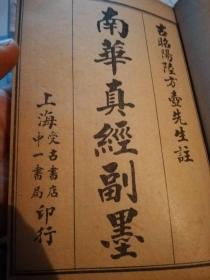 古昭陽陸方壺先生註
南華真經副墨
上海受古書店
中一書局
印行